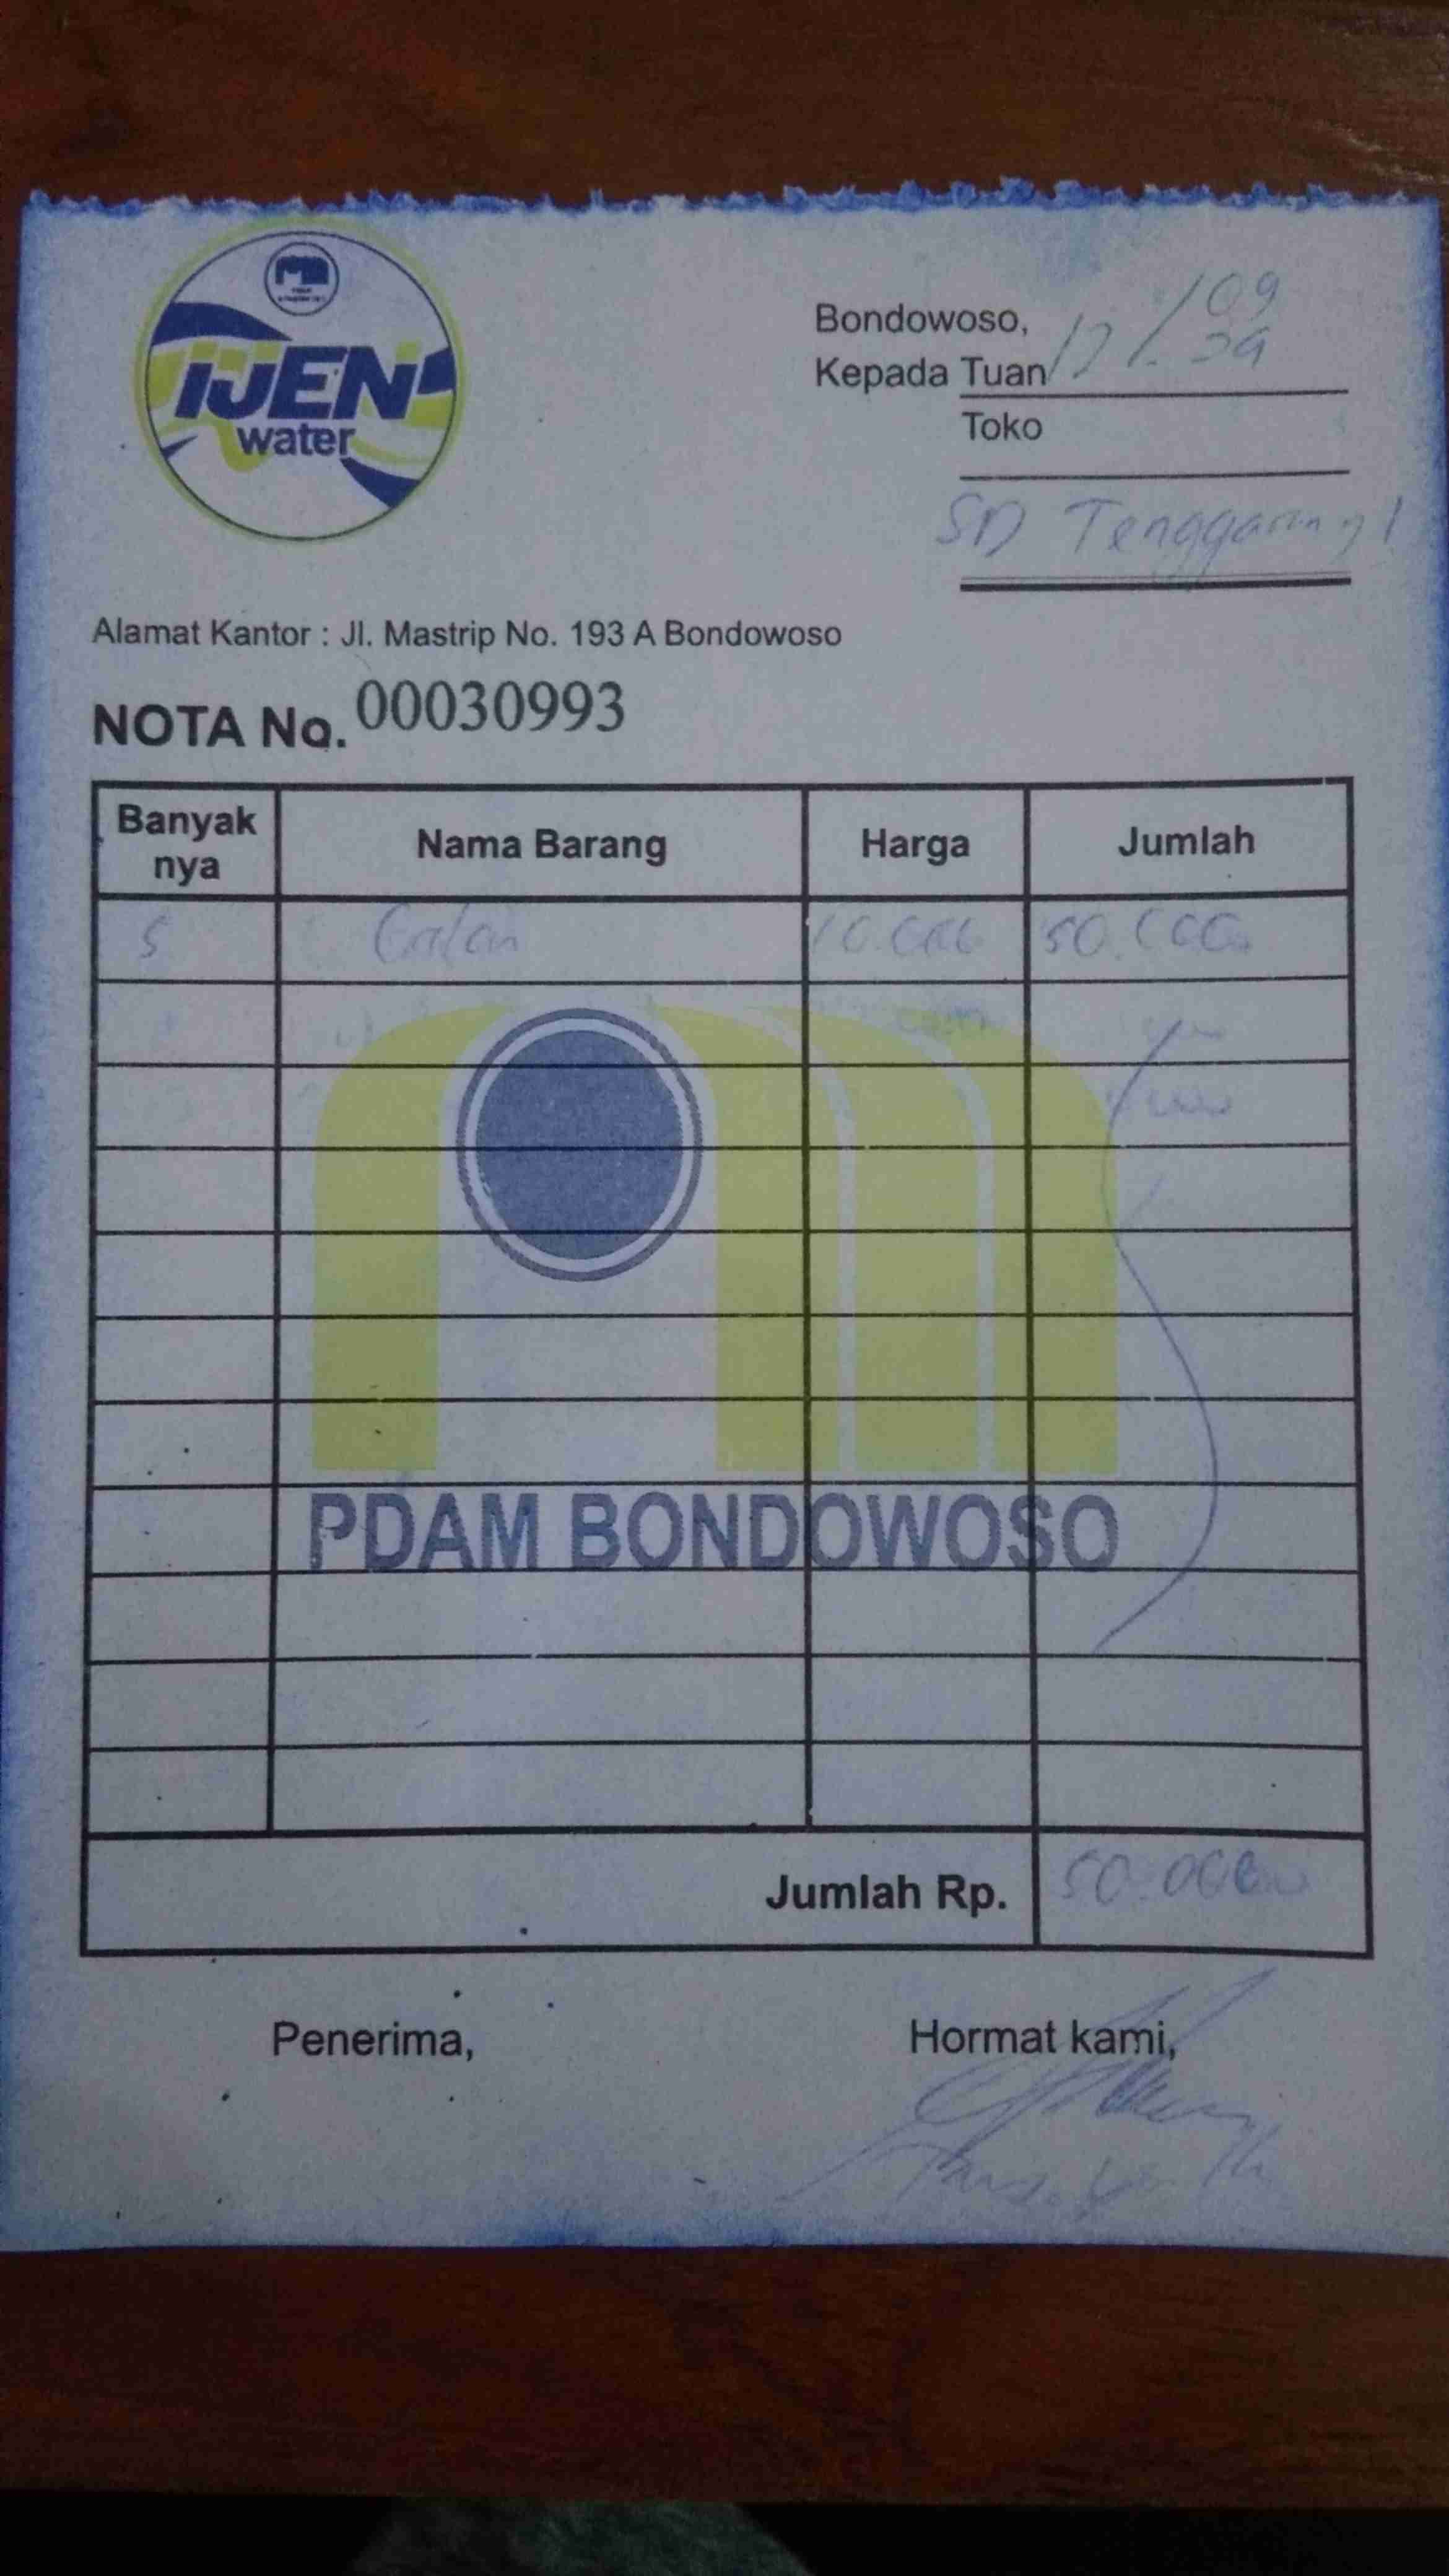 IJEN
water
Bondowoso, 17/09
Kepada Tuan
Toko
SD Tenggarang 1
Alamat Kantor : Jl. Mastrip No. 193 A Bondowoso
NOTA No. 00030993
Banyak nya Nama Barang Harga Jumlah
5 Galon 10.000 50.000
PDAM BONDOWOSO
Jumlah Rp. 50.000
Penerima, Hormat kami,